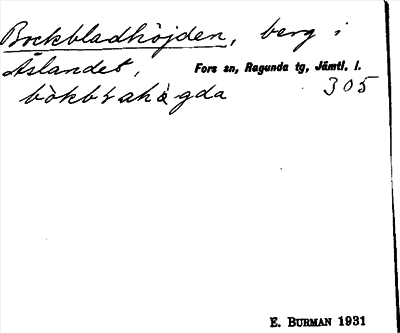 Bockbladhöjden, berg i
Åslandet, Fors sn, Ragunda tg, Jämtl. l.
305
bòkbɽahø̀gda
E. BURMAN 1931